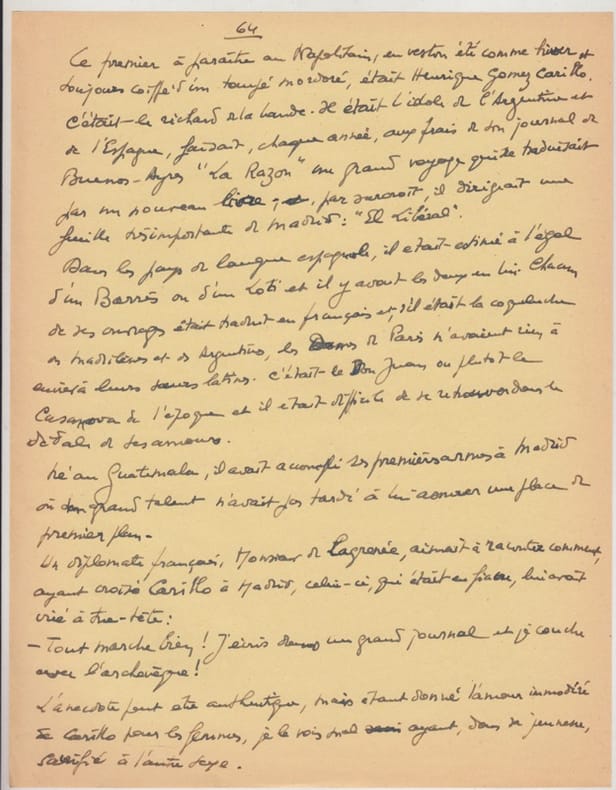 64
Le premier à paraître au Napolitain, en veston été comme hiver et
toujours coiffé d'un taupé mordoré, était Henrique Gomez Carillo.
C'était le richard de la bande. Il était l'idole de l'Argentine et
de l'Espagne, faisant, chaque année, aux frais de son journal de
Buenos-Ayres "La Razon" un grand voyage qui se traduisait
par un nouveau livre, et, par surcroît, il dirigeait une
feuille très importante de Madrid : "El Libéral".
Dans les pays de langue espagnole, il était estimé à l'égal
d'un Barrès ou d'un Loti et il y avait les deux en lui. Chacun
de ses ouvrages était traduit en français et, s'il était la coqueluche
des madrilènes et des Argentines, les Dames de Paris n'avaient rien à
envier à leurs sœurs latines. C'était le Don Juan ou plutôt le
Casanova de l'époque et il était difficile de se retrouver dans le
dédale de ses amours.
Né au Guatemala, il avait accompli ses premières armes à Madrid
où son grand talent n'avait pas tardé à lui assurer une place de
premier plan.
Un diplomate français, Monsieur de Lagrenée, aimait à raconter comment,
ayant croisé Carillo à Madrid, celui-ci, qui était en fiacre, lui avait
crié à tue-tête :
- Tout marche bien ! J'écris dans un grand journal et je couche
avec l'archevêque !
L'anecdote peut être authentique, mais étant donné l'amour immodéré
de Carillo pour les femmes, je le vois mal ayant, dans sa jeunesse,
sacrifié à l'autre sexe.